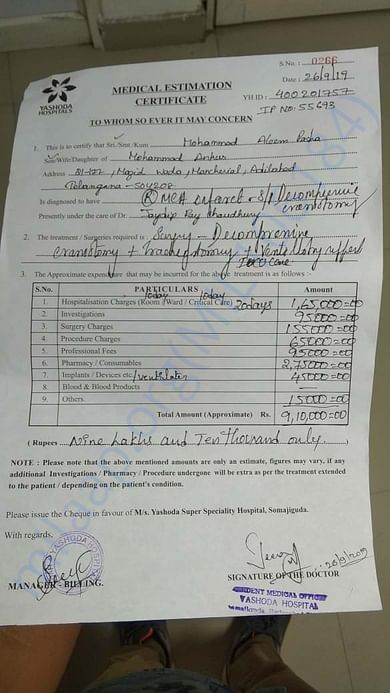 S.No. : 0266
Date : 26/9/19
YASHODA
HOSPITALS
MEDICAL ESTIMATION
CERTIFICATE
YH ID : 400201757
IP NO: 55693
TO WHOM SO EVER IT MAY CONCERN
1. This is to certify that Sri./Smt./Kum Mohammad Aleem Pasha
Son/Wife/Daughter of Mohammad
Address Majid Wada, Mancherial, Adilabad
Telangana - 504208
Is diagnosed to have (R) MCA infarct S/P Decompressive
craniotomy
Presently under the care of Dr. Jaydip Ray Chaudhury
2. The treatment / Surgeries required is Surgery - Decompressive
craniotomy + tracheostomy + Ventilatory support
3. The Approximate expenditure that may be incurred for the above treatment is as follows :-
S.No. PARTICULARS Amount
1. Hospitalisation Charges (Room / Ward / Critical Care) 20days 1,65,000=00
2. Investigations 95000=00
3. Surgery Charges 155000=00
4. Procedure Charges 65000=00
5. Professional Fees 95000=00
6. Pharmacy / Consumables 2,75,000=00
7. Implants / Devices etc., / ventilator 45000=00
8. Blood & Blood Products —
9. Others. 15000=00
Total Amount (Approximate) Rs. 9,10,000=00
( Rupees Nine Lakhs and Ten thousand only. )
NOTE : Please note that the above mentioned amounts are only an estimate, figures may vary, if any
additional Investigations / Pharmacy / Procedure undergone will be extra as per the treatment extended
to the patient / depending on the patient's condition.
Please issue the Cheque in favour of M/s. Yashoda Super Speciality Hospital, Somajiguda.
With regards,
26/9/2019
MANAGER - BILLING.
SIGNATURE OF THE DOCTOR
MEDICAL OFFICER
YASHODA HOSPITAL